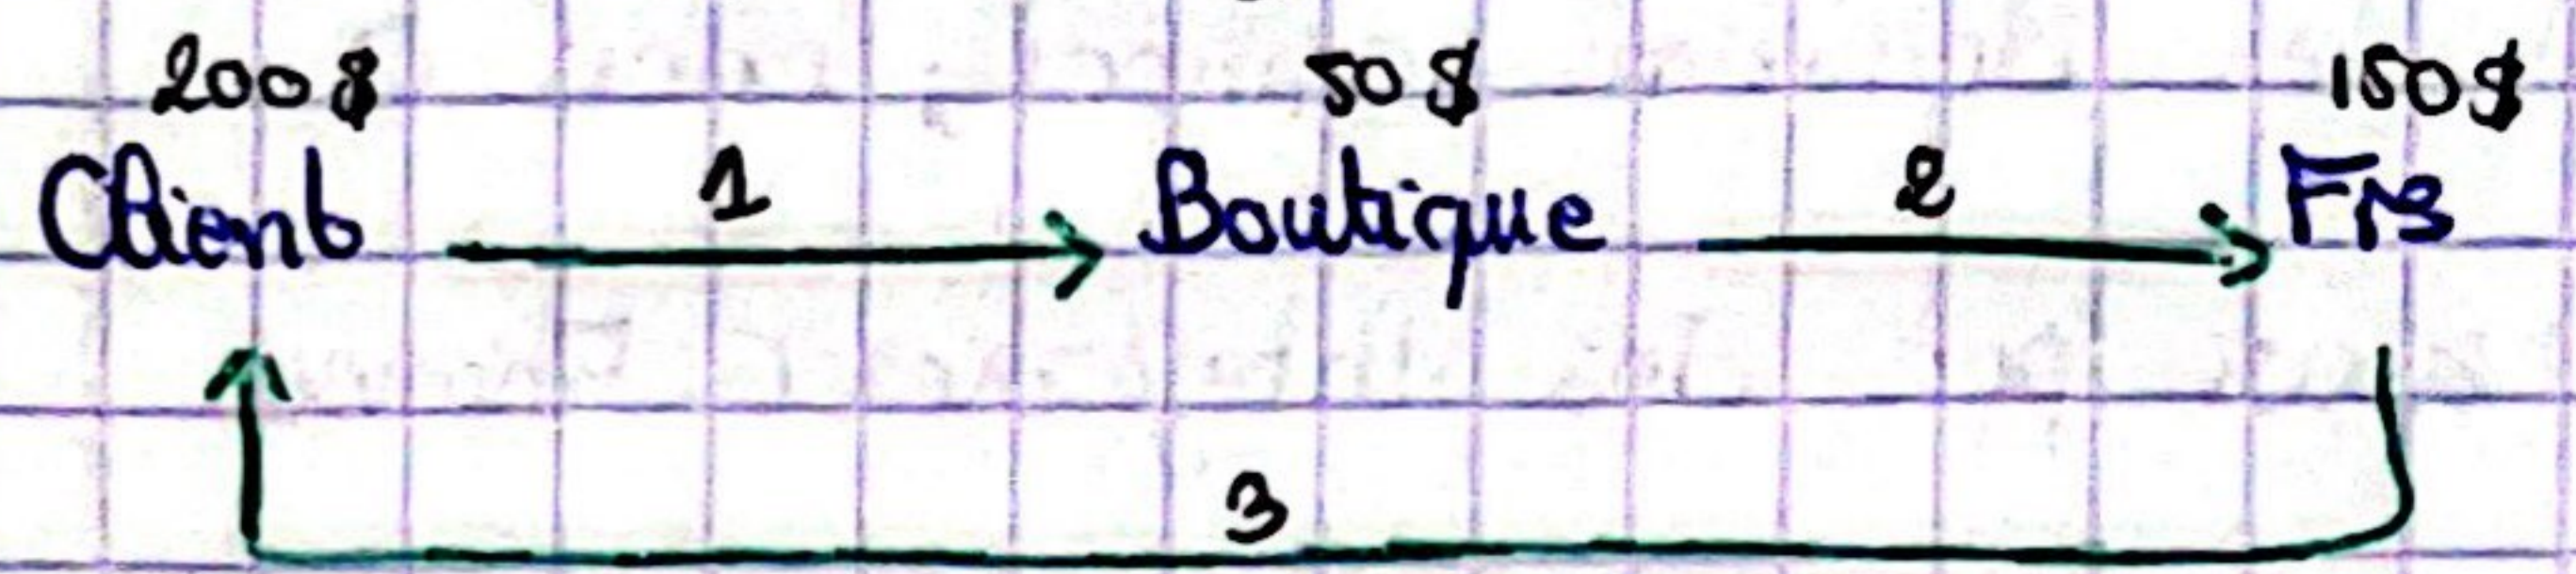 200$ 50$ 150$
Client 1 Boutique 2 Frs
3